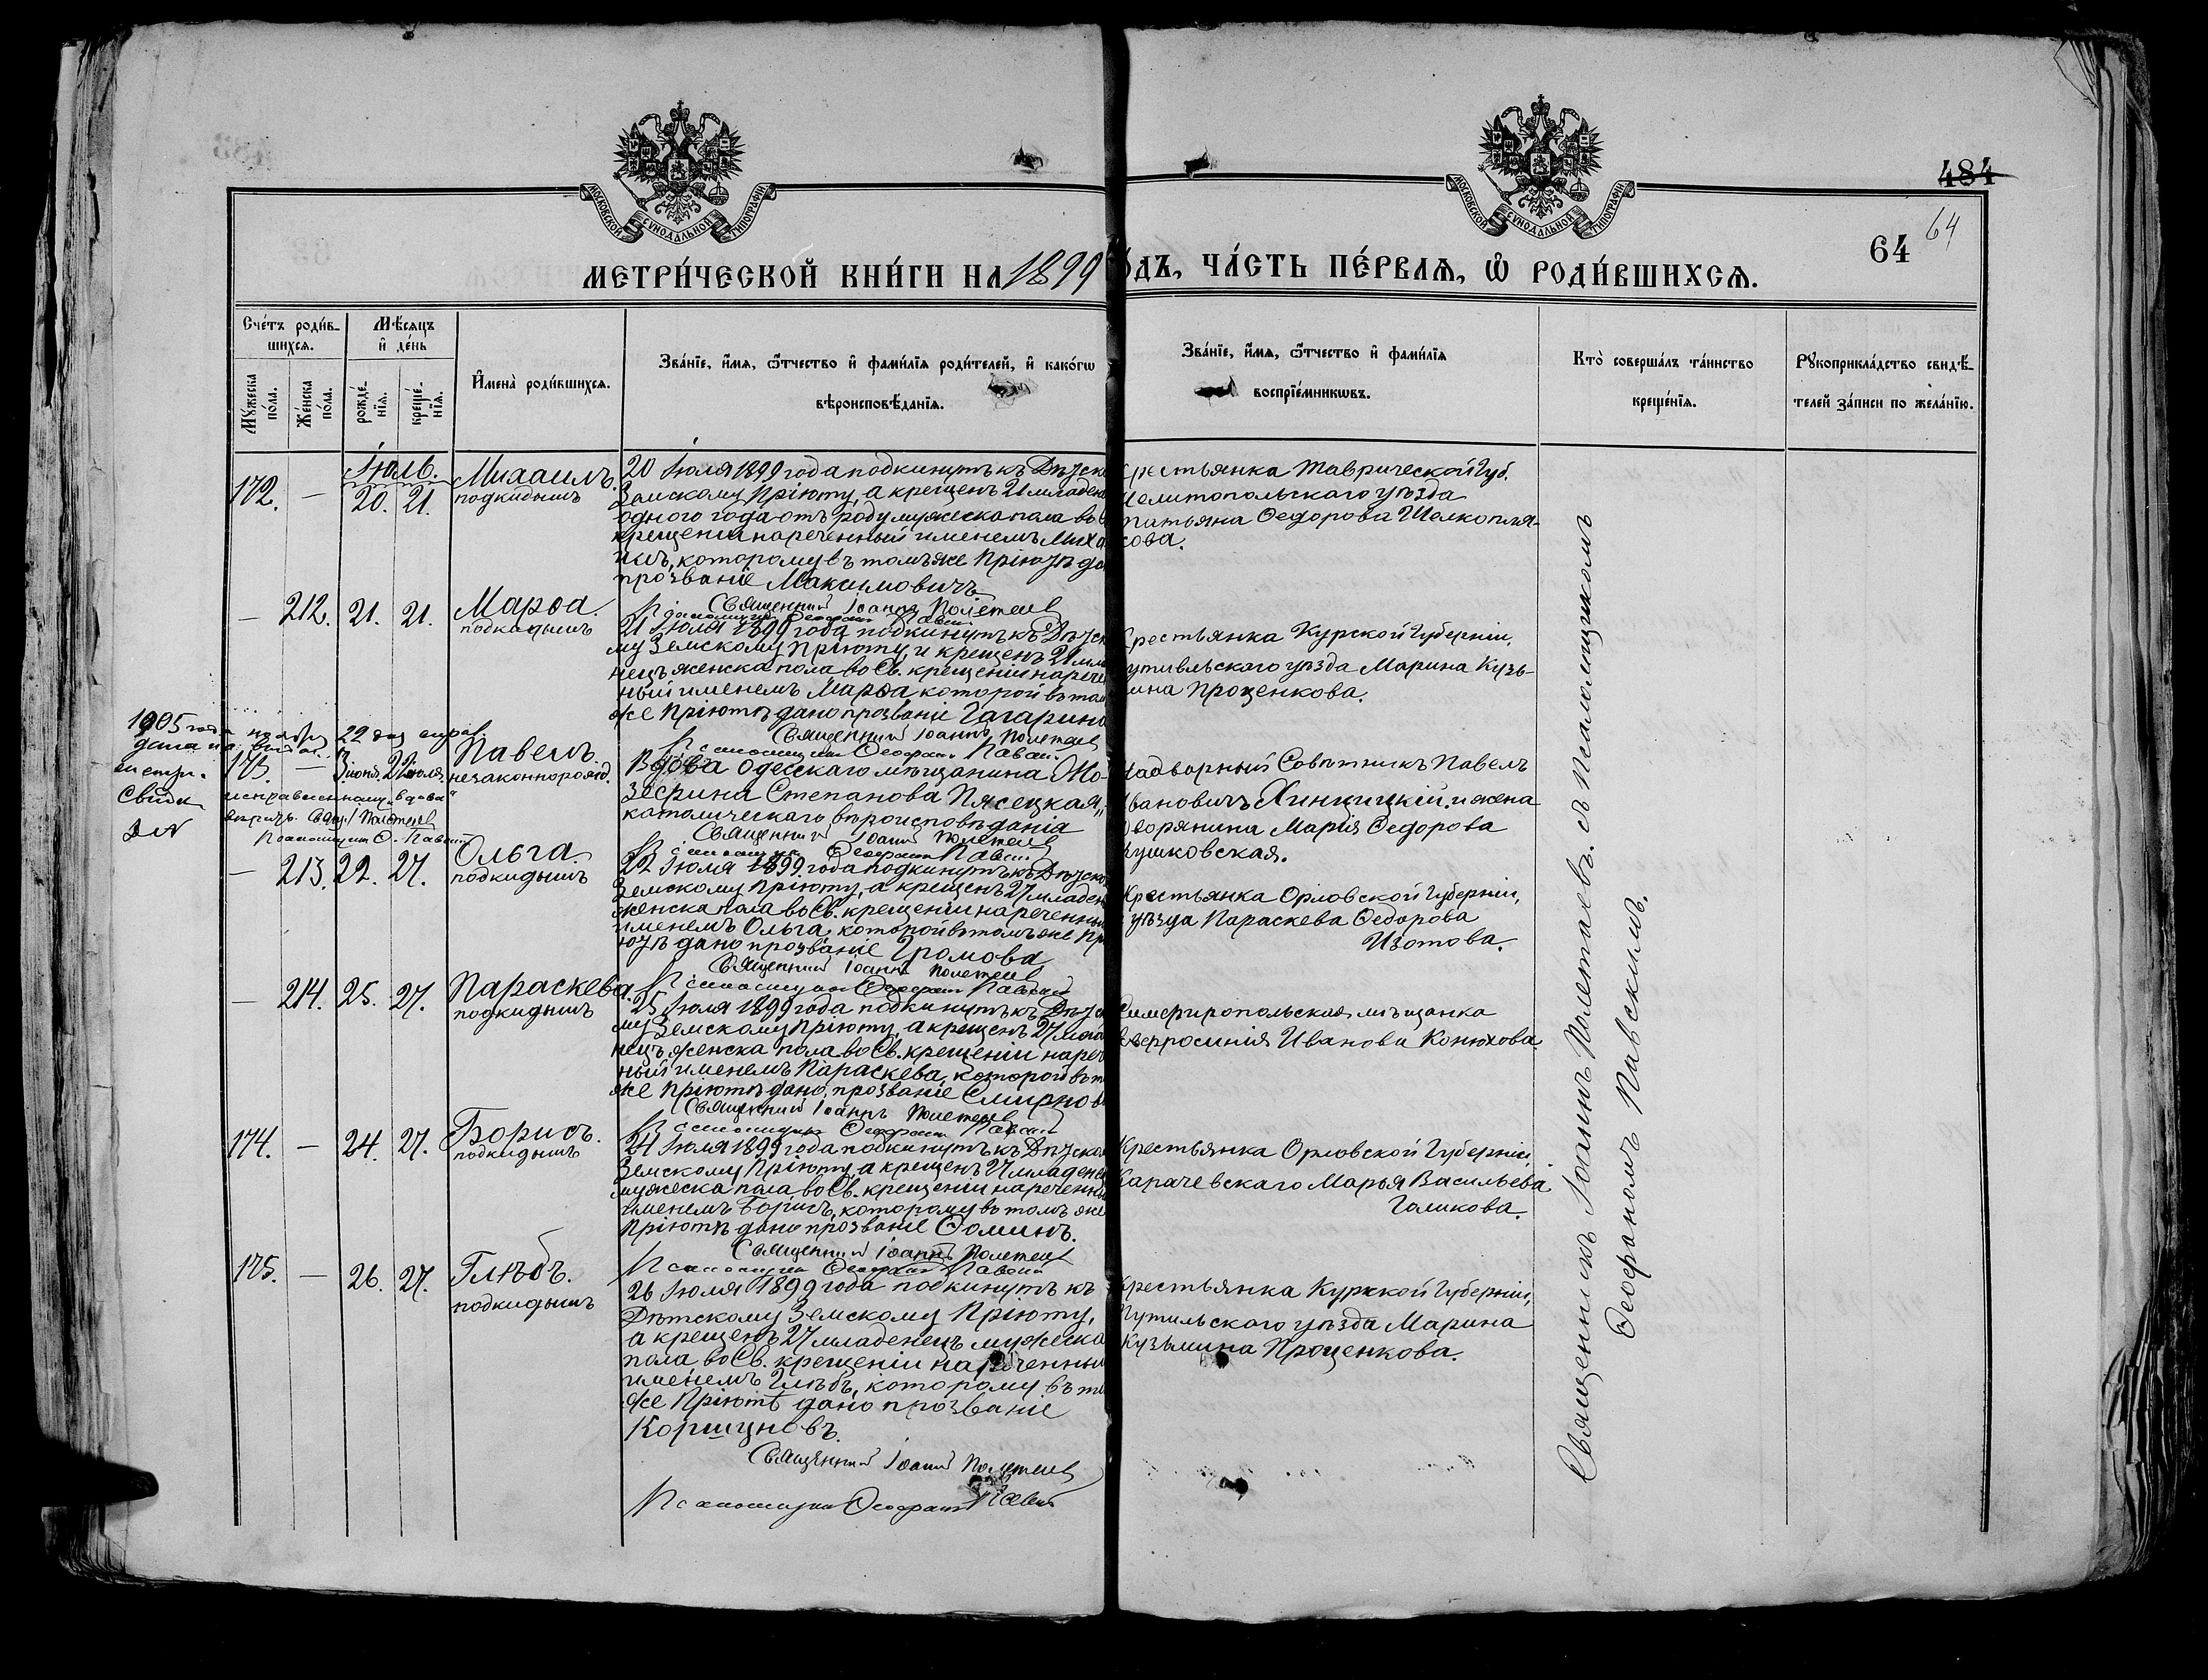 МОСКОВСКОЙ СѴНОДАЛЬНОЙ ТИПОГРАФІИ
МОСКОВСКОЙ СѴНОДАЛЬНОЙ ТИПОГРАФІИ
484
64
64
МЕТРИ́ЧЕСКОЙ КНИ́ГИ НА 1899
О́ДЪ, ЧА́СТЬ ПЕ́РВАѦ, Ѡ҆ РОДИ́ВШИХСѦ.
Сче́тъ роди́в-
шихсѧ.
Мѣ́сѧцъ
и҆ де́нь
Мꙋ́жеска
по́ла.
Же́нска
по́ла.
рожде́-
нїѧ.
креще́-
нїѧ.
И҆мена̀ роди́вшихсѧ.
Зва́нїе, и҆́мѧ, ѻ҆́тчество и҆ фами́лїѧ роди́телей, и҆ како́гѡ
вѣроисповѣ́данїѧ.
Зва́нїе, и҆́мѧ, ѻ҆́тчество и҆ фами́лїѧ
воспрїе́мникѡвъ.
Кто̀ соверша́лъ та́инство
креще́нїѧ.
Рꙋкоприкла́дство свидѣ́-
телей за́писи по жела́нїю.
Іюль.
172. — 20. 21. Михаилъ.
подкидышъ
20 Іюля 1899 года подкинутъ къ Дѣтско
Земскому Пріюту, а крещен 21 младен
одного года отъ роду мужеска пола во
крещеніи нареченный именемъ Миха
илъ, которому въ томъ же Пріютѣ да
прозваніе Максимовичъ
Священник Іоаннъ Полетаев
Псаломщик Феофан Павск
рестьянка Таврической Губ.
елитопольскаго уѣзда
атьяна Ѳедорова Шелкопля-
сова.
— 212. 21. 21. Марѳа.
подкидышъ
21 Іюля 1899 года подкинутъ къ Дѣтск
му Земскому Пріюту, и крещенъ 21 мла
нецъ женска пола во Св. крещеніи нарече
ный именемъ Марѳа, которой въ том
же Пріютѣ дано прозваніе Гагарина
Священник Іоаннъ Полетаев
Псаломщик Феофан Павск
рестьянка Курской Губерніи,
утивльскаго уѣзда Марина Кузь-
мина Проценкова.
1905 года ноября 22 дня
Свид
173. — 3 іюня. 22 іюля. Павелъ.
незаконнорожд.
исправленному „вдова"
вѣрить. Свящ. І. Полетаев
Псаломщик Ѳ. Павск
Вдова Одесскаго мѣщанина Жо-
зефина Степанова Пясецкая,
католическаго вѣроисповѣданія
Священник Іоаннъ Полетаев
Псаломщик Феофан Павск
Надворный Совѣтникъ Павелъ
Ивановичъ Хинцицкій. и жена
дворянина Марія Ѳедорова
ушковская.
— 213. 22. 27. Ольга.
подкидышъ
22 Іюля 1899. года подкинутъ къ Дѣтско
Земскому Пріюту, а крещенъ 27 младен
женска пола во Св. крещеніи нареченны
именемъ Ольга, которой въ томъ же Пр
ютѣ дано прозваніе Громова
Священник Іоаннъ Полетаев
Псаломщик Феофан Павск
Крестьянка Орловской Губерніи,
уѣзда Параскева Ѳедорова
Изотова.
— 214. 25. 27. Параскева.
подкидышъ
25 Іюля 1899 года подкинутъ къ Дѣтс
му Земскому Пріюту, а крещенъ 27 млад
нецъ женска пола во Св. крещеніи нареч
ный именемъ Параскева, которой въ т
же Пріютѣ дано, прозваніе Смирнов
Священник Іоаннъ Полетаев
Псаломщик Феофан Павск
Симферопольская мѣщанка
Евфросинія Иванова Конюхова
174. — 24. 27. Борисъ.
подкидышъ
24 Іюля 1899 года подкинутъ къ Дѣтско
Земскому Пріюту, а крещенъ 27 младене
мужеска пола, во Св. крещеніи нареченны
именемъ Борисъ, которому въ томъ же
Пріютѣ дано прозваніе Ѳоминъ.
Священник Іоаннъ Полетаев
Псаломщик Феофан Павск
Крестьянка Орловской Губерніи,
Карачевскаго Марья Васильева
Голикова.
175. — 26. 27. Глѣбъ.
подкидышъ
26 Іюля 1899 года подкинутъ къ
Дѣтскому Земскому Пріюту,
а крещенъ 27 младенецъ мужеска
пола, во Св. крещеніи нареченны
именемъ Глѣбъ, которому въ то
же Пріютѣ дано прозваніе
Коршуновъ.
Священник Іоаннъ Полетаев
Псаломщик Феофан Павск
Крестьянка Курской Губерніи,
Путильскаго уѣзда Марина
Кузьмина Проценкова.
Священникъ Іоаннъ Полетаевъ. съ Псаломщикомъ
Ѳеофаномъ Павскимъ.